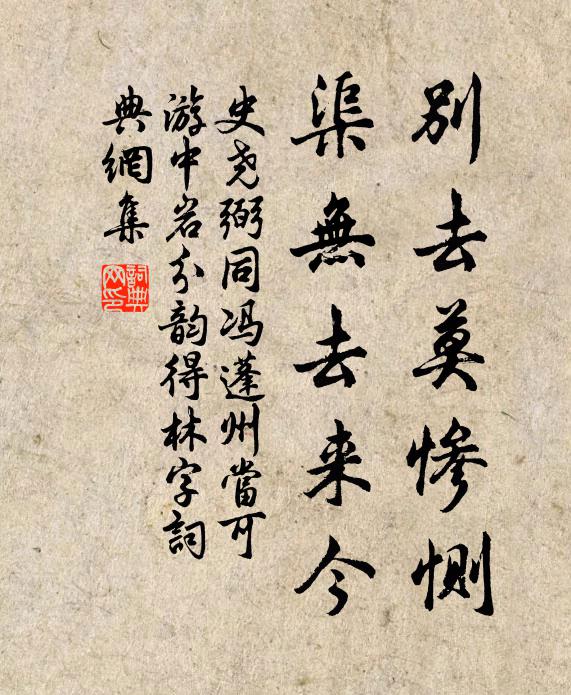 別去莫慘惻
渠無去来今
史尧弼同冯蓬州當可
游中岩分韵得林字詞
典網集
詞典
网印